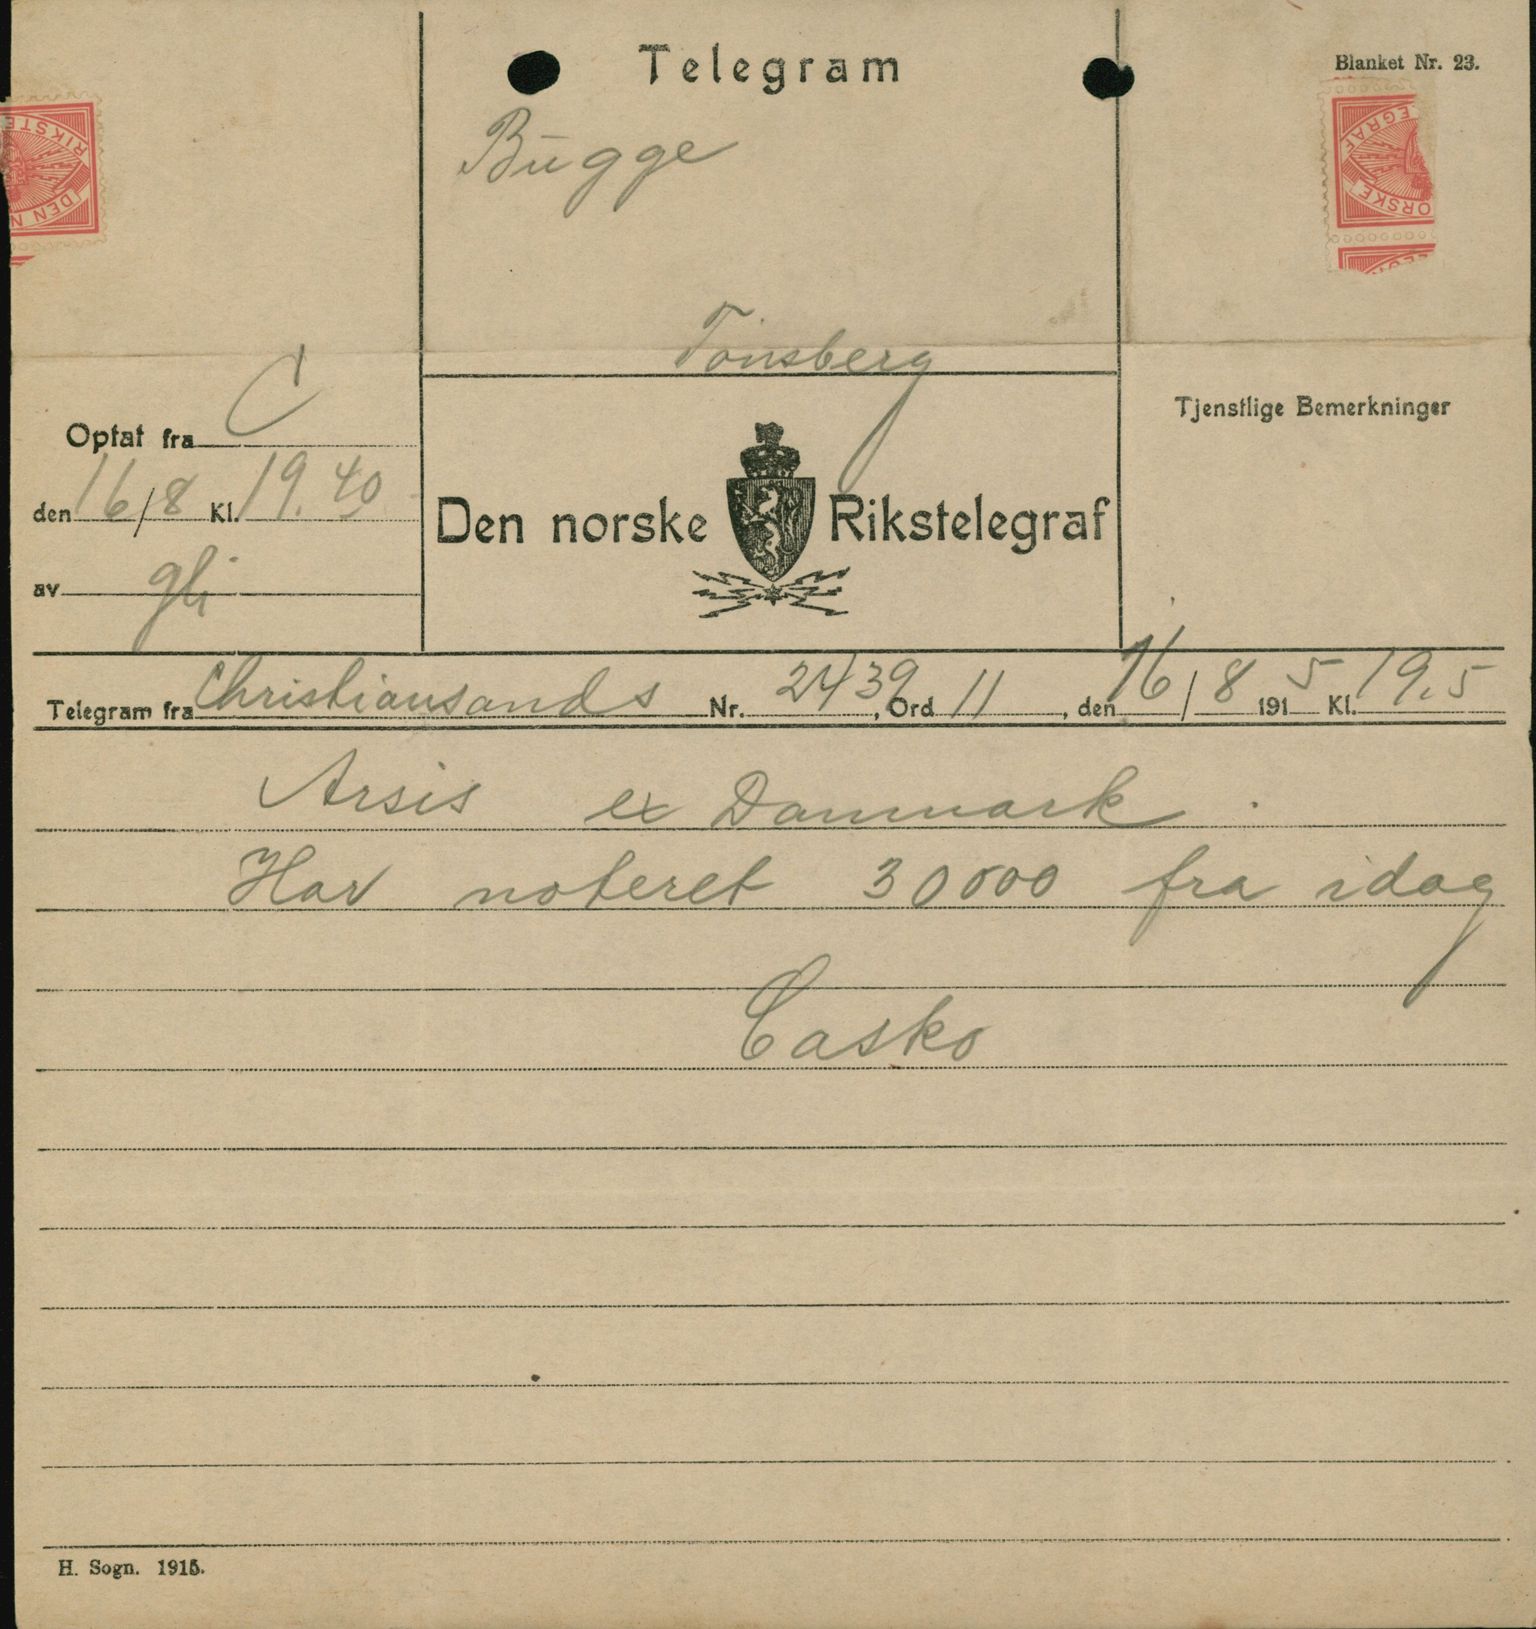 Telegram
Blanket Nr. 23.
Bugge
Tönsberg
RIKSTE
DEN N
EGRAF
ORSKE
Optat fra C
den 16/8 Kl. 19.40
av gli
Den norske Rikstelegraf
Tjenstlige Bemerkninger
Telegram fra Christiansands Nr. 2439, Ord 11, den 16/8 1915 Kl. 19.5
Arsis ex Danmark.
Har noteret 30000 fra idag
Casko
H. Sogn. 1915.